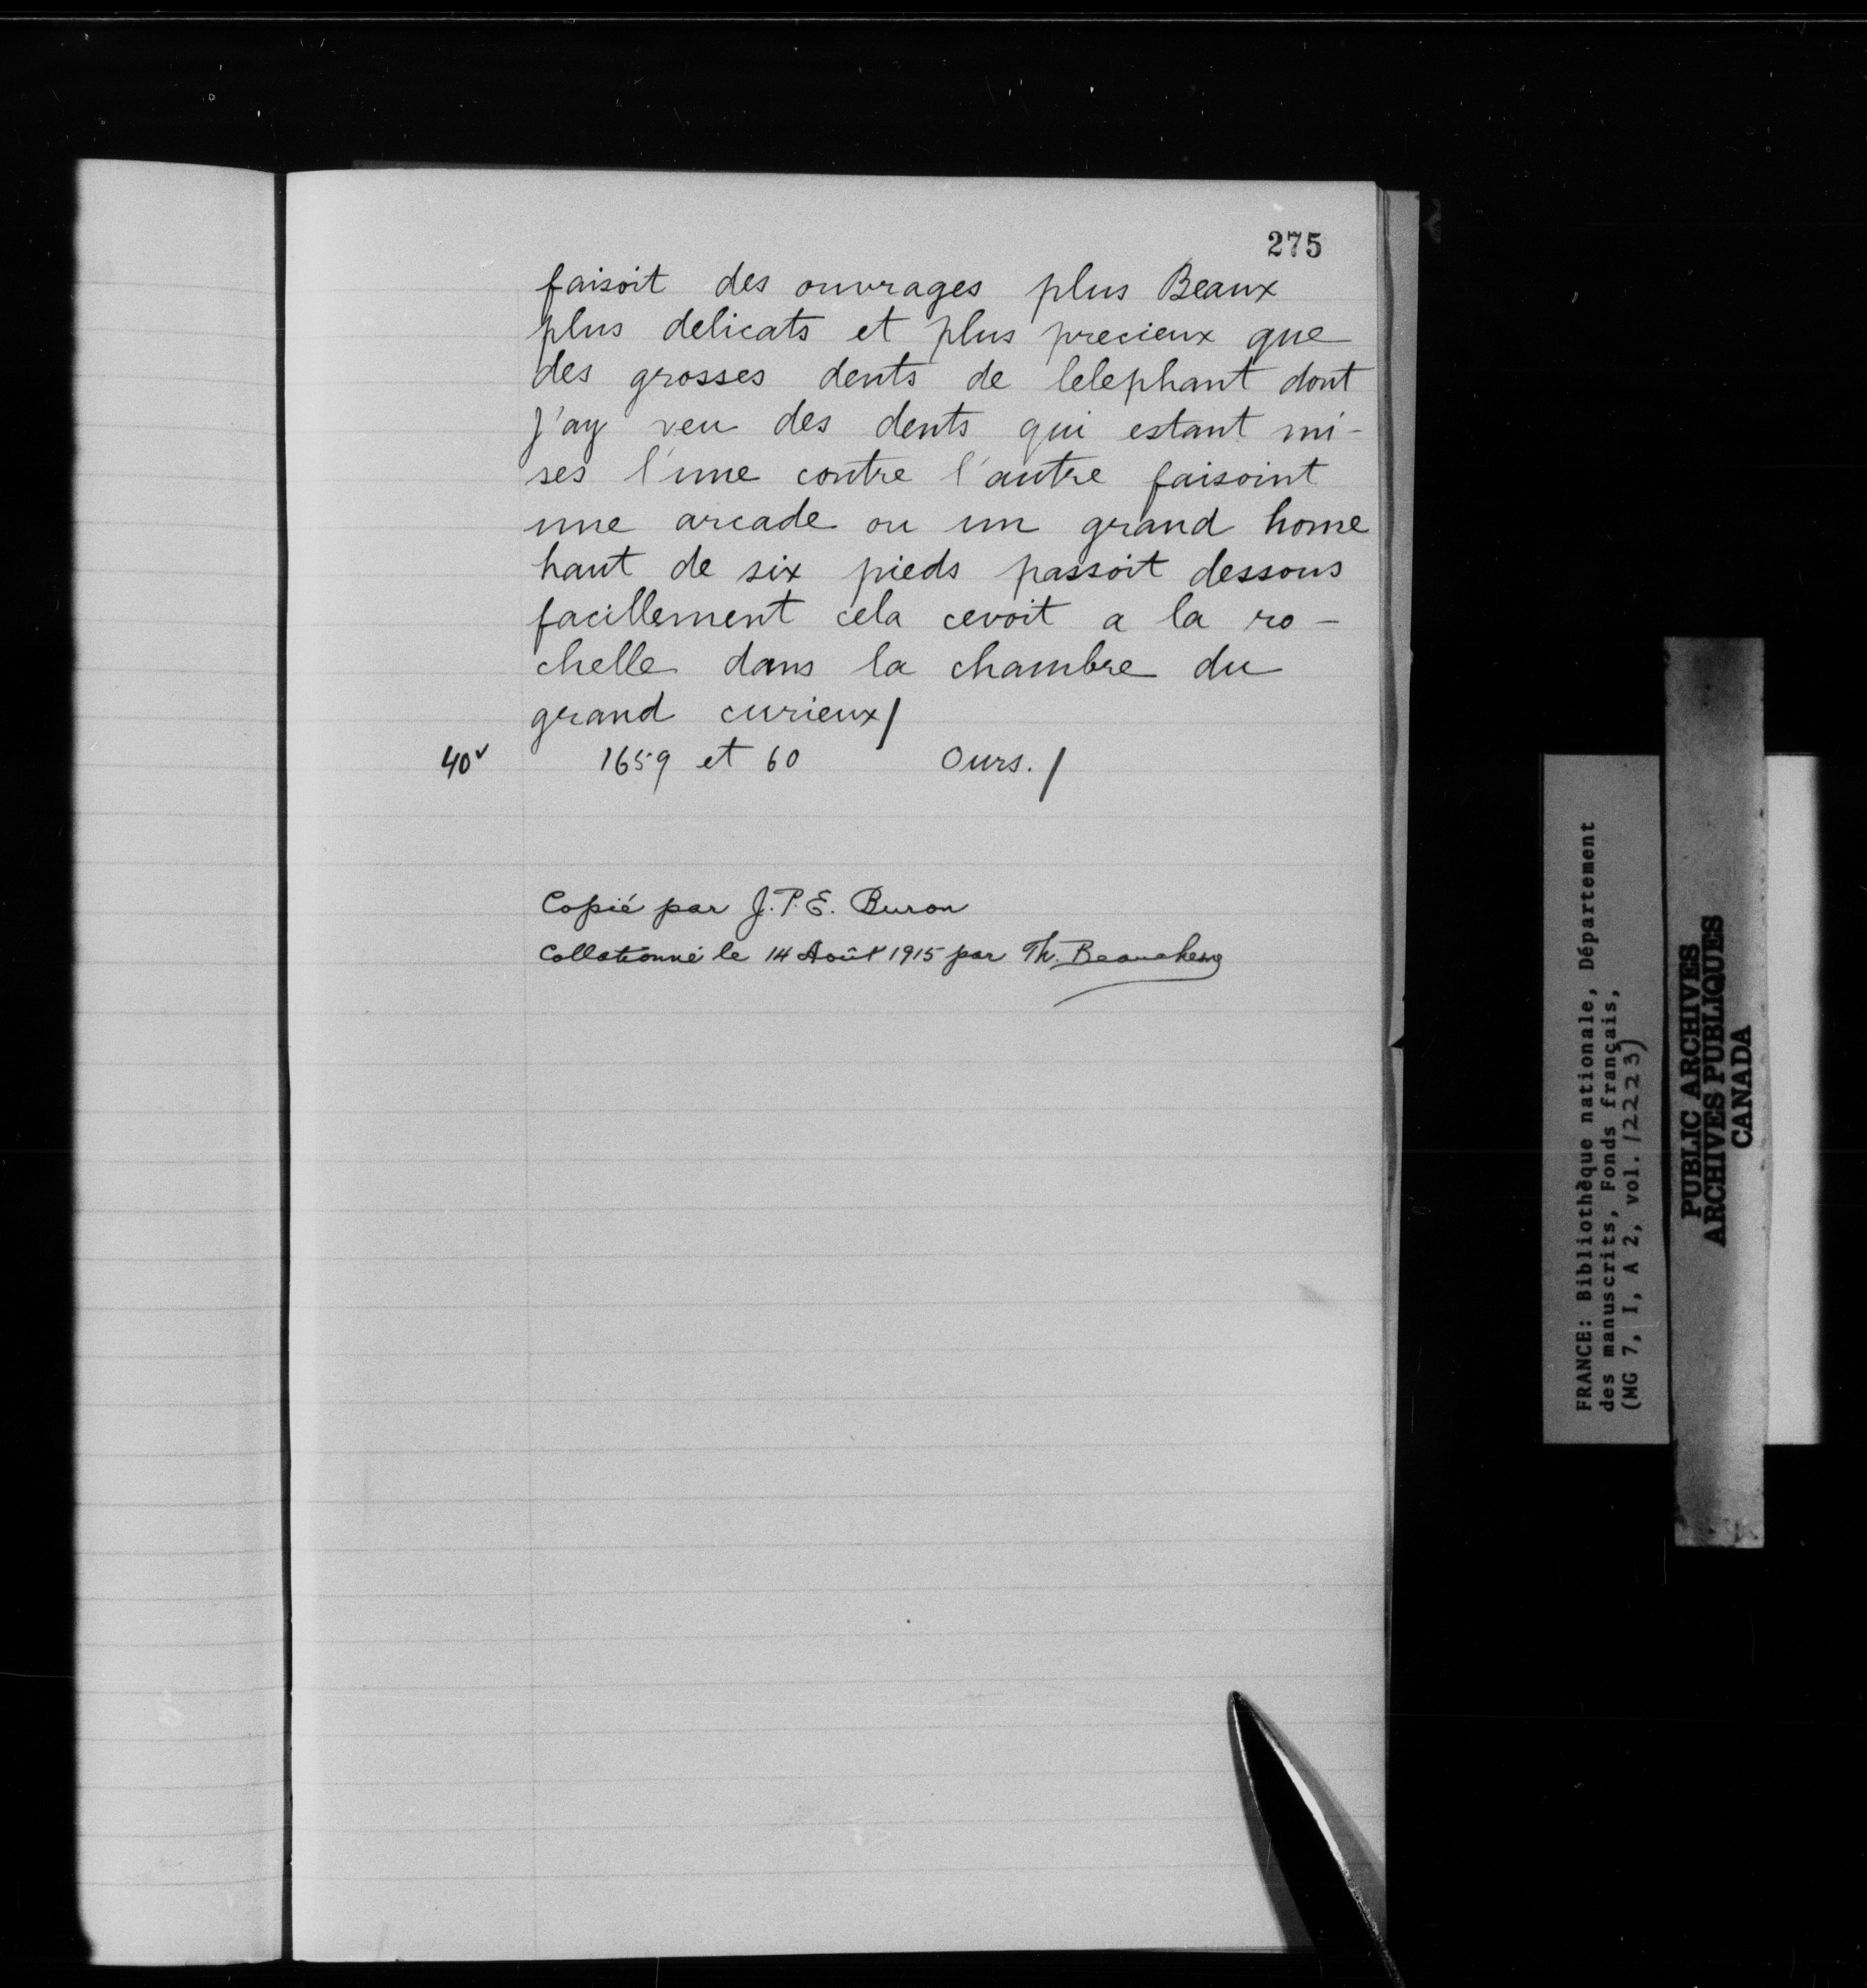 275
faisoit des ouvrages plus Beaux
plus delicats et plus precieux que
des grosses dents de lelephant dont
j'ay veu des dents qui estant mi-
ses l'une contre l'autre faisoint
une arcade ou un grand home
haut de six pieds passoit dessous
facillement cela cevoit a la ro-
chelle dans la chambre du
grand curieux/
40v 1659 et 60 Ours./
Copié par J.P.E. Buron
Collationné le 14 Août 1915 par Th. Beauchesne
FRANCE: Bibliothèque nationale, Département
des manuscrits, Fonds français,
(MG 7, I, A 2, vol. 12223)
PUBLIC ARCHIVES
ARCHIVES PUBLIQUES
CANADA